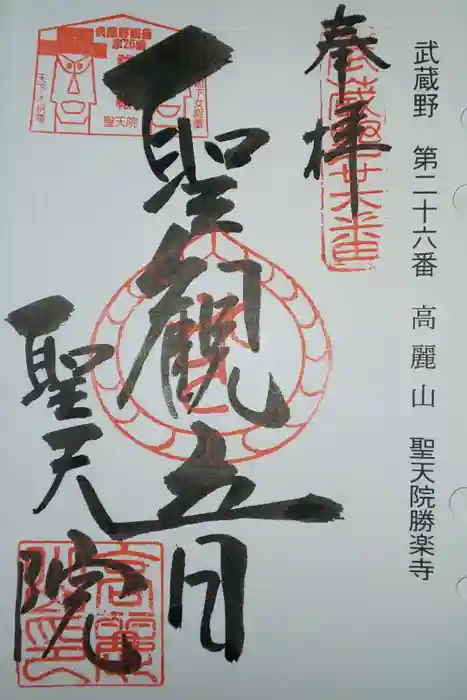 武蔵野 第二十六番 高麗山 聖天院勝楽寺
奉拝
武蔵野廿六番
聖観立日
聖天院
武蔵野観音
第26番
聖天院
天下大将軍
地下女将軍